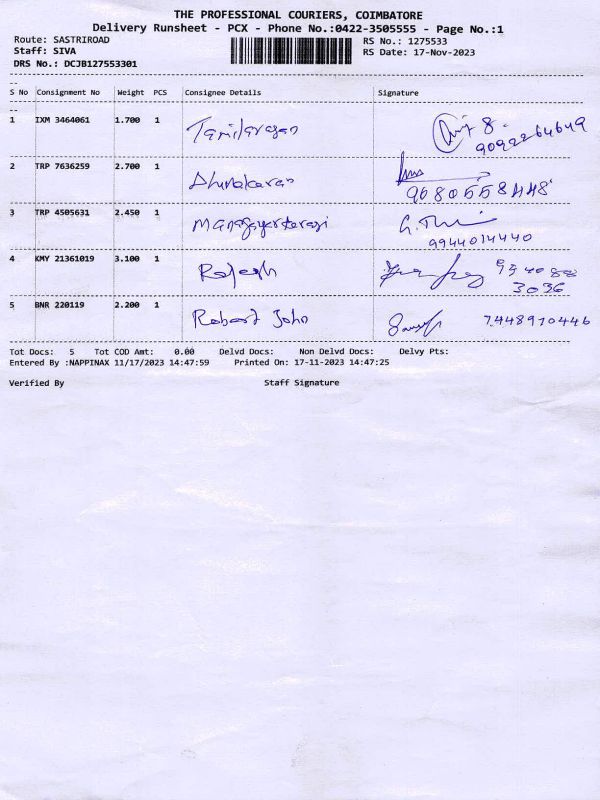 THE PROFESSIONAL COURIERS, COIMBATORE
Delivery Runsheet - PCX - Phone No.:0422-3505555 - Page No.:1
Route: SASTRIROAD RS No.: 1275533
Staff: SIVA RS Date: 17-Nov-2023
DRS No.: DCJB127553301
S No Consignment No Weight PCS Consignee Details Signature
1 IXM 3464061 1.700 1 Tamilarasan 8.
9092264649
2 TRP 7636259 2.700 1 Dhinakaran
9080558448
3 TRP 4505631 2.450 1 Mangayarkarasi
9944014440
4 KMY 21361019 3.100 1 Rajesh
3036
5 BNR 220119 2.200 1 Robert John 7448910446
Tot Docs: 5 Tot COD Amt: 0.00 Delvd Docs: Non Delvd Docs: Delvy Pts:
Entered By :NAPPINAX 11/17/2023 14:47:59 Printed On: 17-11-2023 14:47:25
Verified By Staff Signature